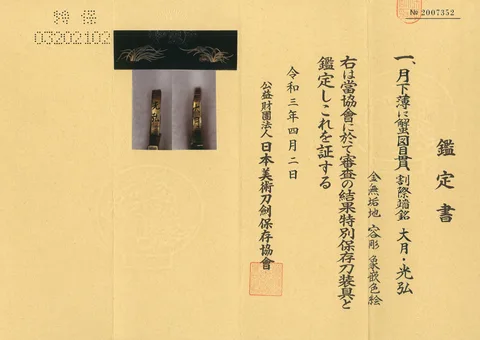 鑑定書
一、月下薄に蟹図目貫、割際端銘 大月・光弘
金無垢地 容彫 象嵌色絵
右は當協會に於て審査の結果特別保存刀装具と
鑑定しこれを証する
令和三年四月二日
公益財團法人 日本美術刀劍保存協會
№ 2007352
特保
03202102